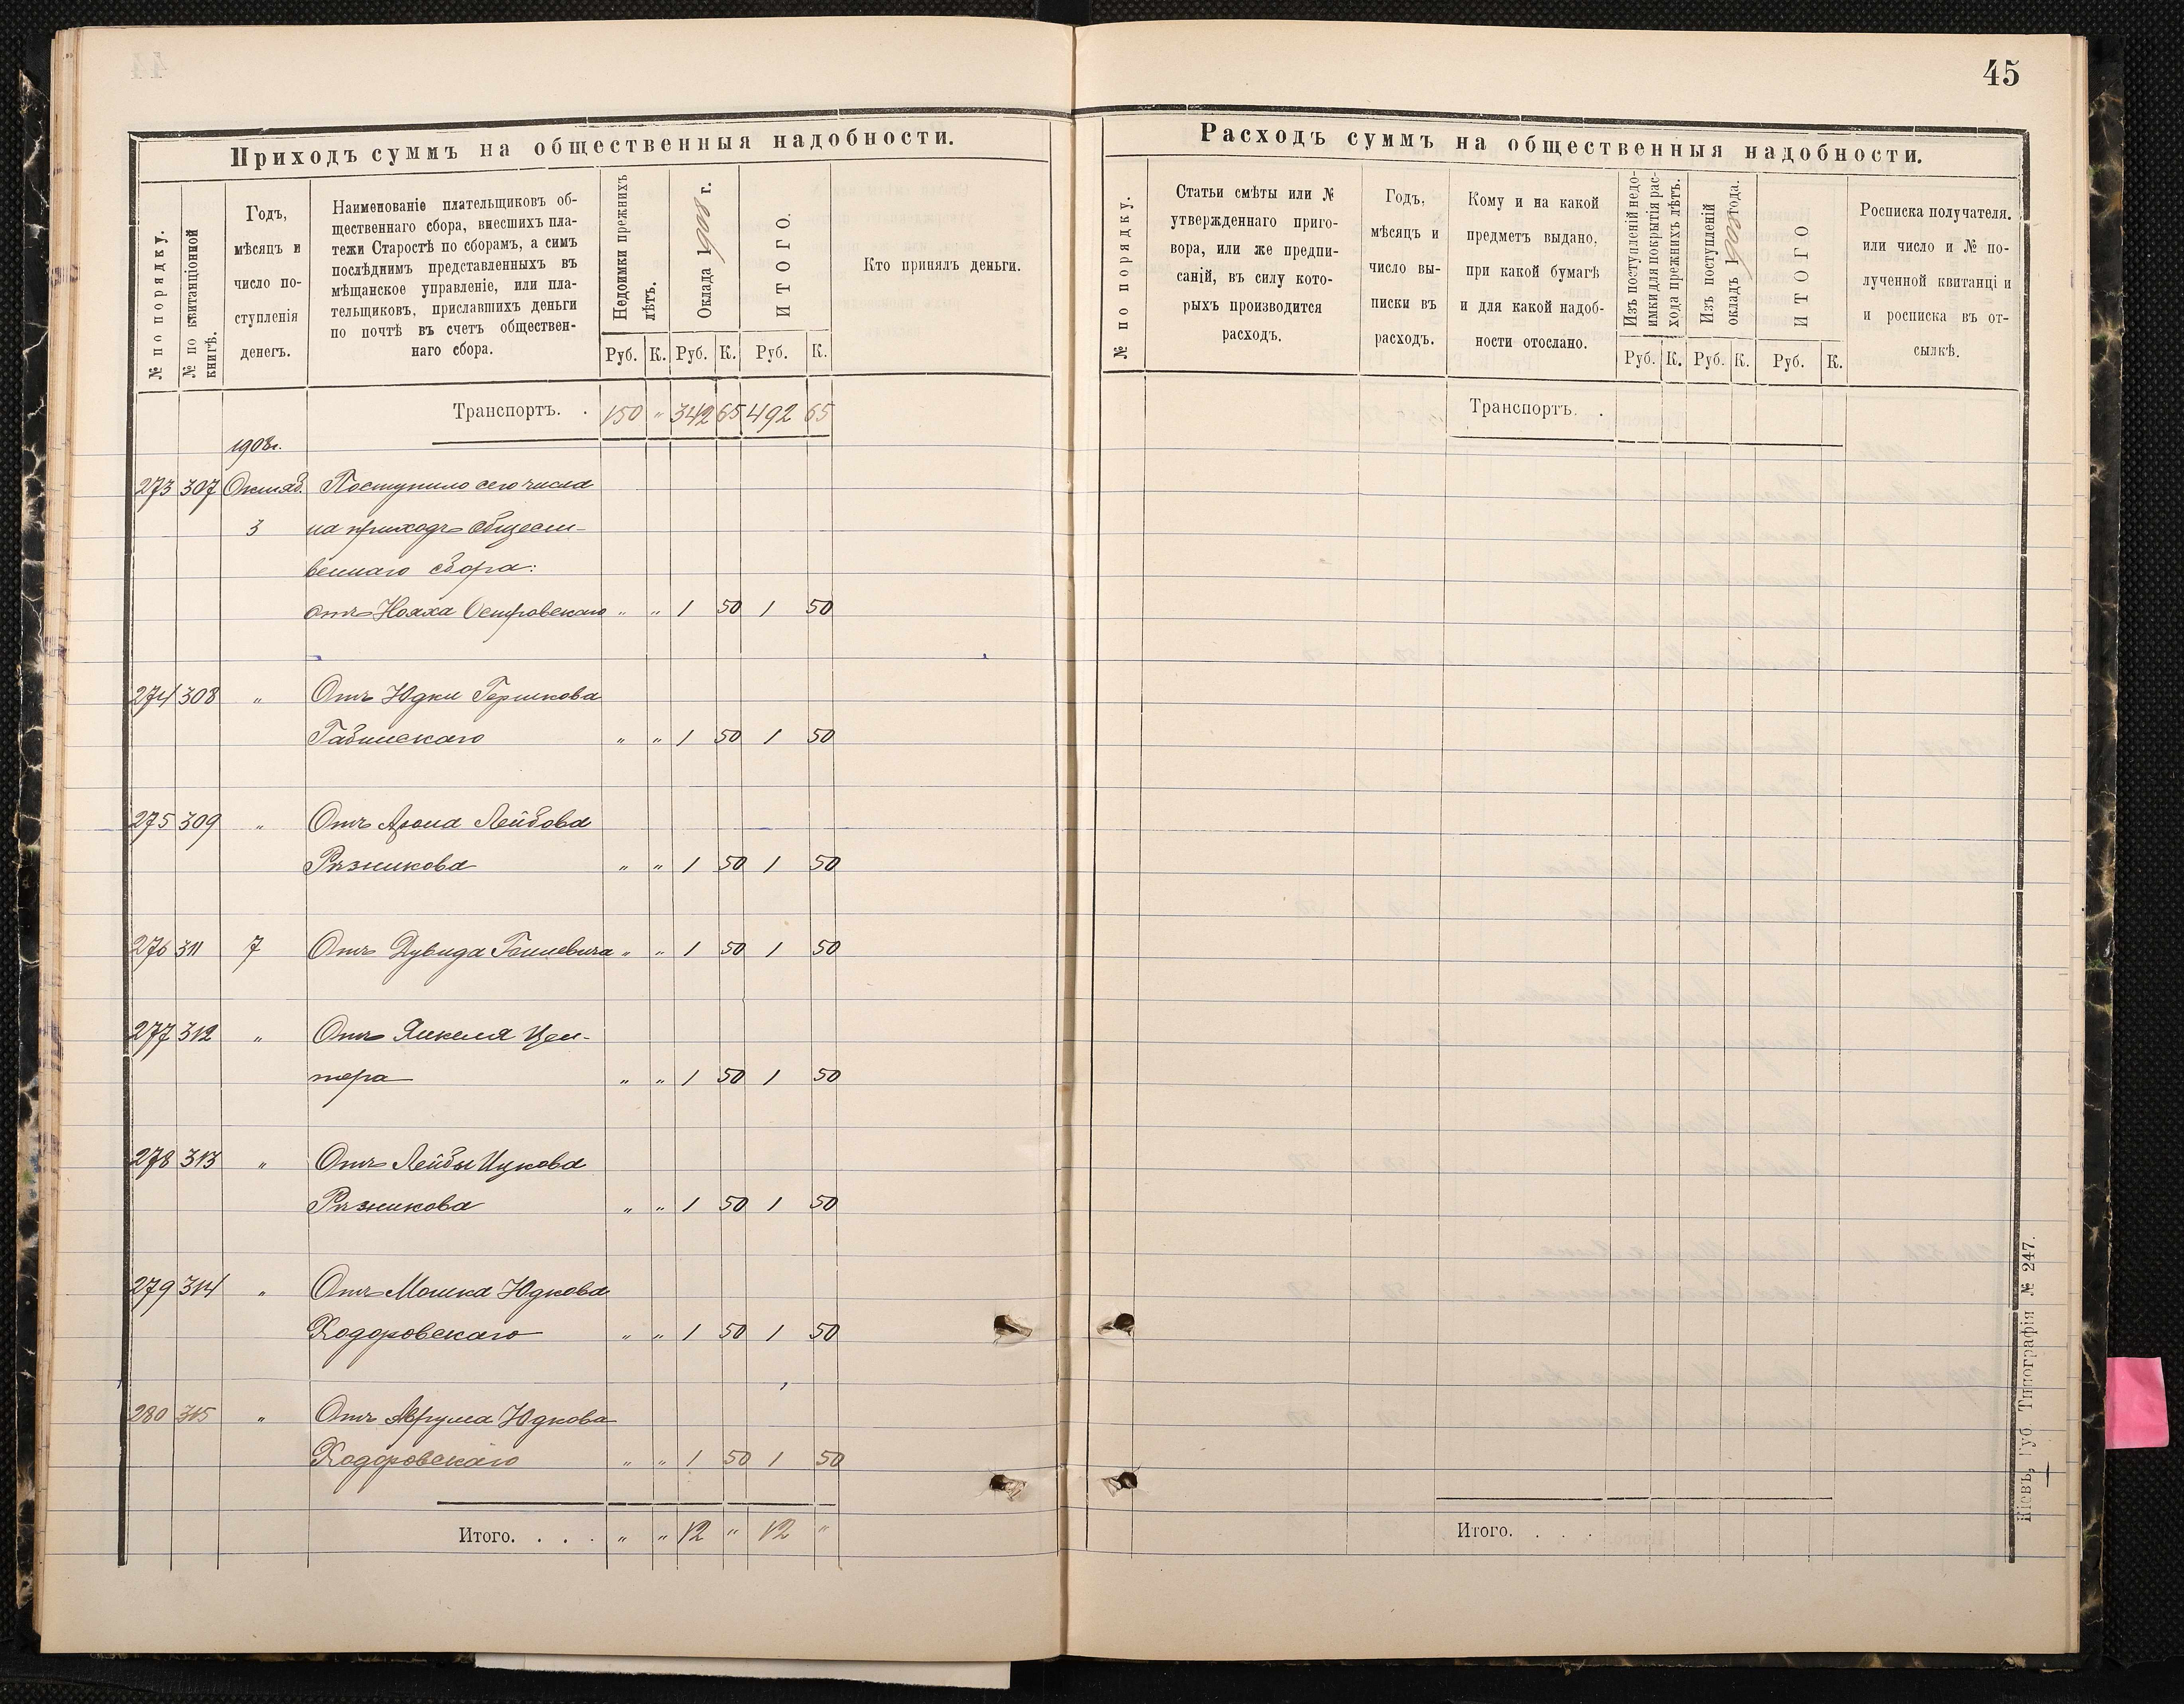 45
Приходъ суммъ на общественныя надобности.
№ по порядку.
№ по квитанціонной книгѣ.
Годъ,
мѣсяцъ и
число по-
ступленія
денегъ.
Наименованіе плательщиковъ об-
щественнаго сбора, внесшихъ пла-
тежи Старостѣ по сборамъ, а симъ
послѣднимъ представленныхъ въ
мѣщанское управленіе, или пла-
тельщиковъ, приславшихъ деньги
по почтѣ въ счетъ обществен-
наго сбора.
Недоимки прежнихъ
лѣтъ.
Оклада 1908 г.
ИТОГО.
Кто принялъ деньги.
Руб. К. Руб. К. Руб. К.
Транспортъ. . 150 " 342 65 492 65
1908 г.
273 307 Октяб. Поступило сего числа
3 на приходъ общест-
веннаго сбора:
отъ Нояха Островскаго " " 1 50 1 50
274 308 " Отъ Юдки Гершкова
Габинскаго " " 1 50 1 50
275 309 " Отъ Арона Лейбова
Рѣзникова " " 1 50 1 50
276 311 7 Отъ Дувида " " 1 50 1 50
277 312 " Отъ Янкеля Цен-
тера " " 1 50 1 50
278 313 " Отъ Лейбы Ицкова
Рѣзникова " " 1 50 1 50
279 314 " Отъ Мошка Юдкова
Ходоровскаго " " 1 50 1 50
280 315 " Отъ Аврума Юдкова
Ходоровскаго " " 1 50 1 50
Итого. . . . " " 12 " 12 "
Расходъ суммъ на общественныя надобности.
№ по порядку.
Статьи смѣты или №
утвержденнаго приго-
вора, или же предпи-
саній, въ силу кото-
рыхъ производится
расходъ.
Годъ,
мѣсяцъ и
число вы-
писки въ
расходъ.
Кому и на какой
предметъ выдано,
при какой бумагѣ
и для какой надоб-
ности отослано.
Изъ поступленій недо-
имки для покрытія рас-
хода прежнихъ лѣтъ.
Изъ поступленій
окладъ 1908 года.
ИТОГО
Росписка получателя.
или число и № по-
лученной квитанці и
и росписка въ от-
сылкѣ.
Руб. К. Руб. К. Руб. К.
Транспортъ. .
Итого. . . .
Кіевъ, Губ. Типографія № 247.